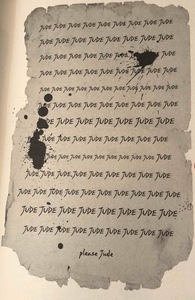 Jude Jude Jude Jude Jude Jude Jude Jude
Jude Jude Jude Jude Jude Jude Jude Jude
Jude Jude Jude Jude Jude Jude Jude Jude
Jude Jude Jude Jude Jude Jude Jude Jude
Jude Jude Jude Jude Jude Jude Jude Jude Jude
Jude Jude Jude Jude Jude Jude Jude Jude
Jude Jude Jude Jude Jude Jude Jude Jude
Jude Jude Jude Jude Jude Jude Jude
Jude Jude Jude Jude Jude Jude Jude Jude
Jude Jude Jude Jude Jude Jude Jude Jude
Jude Jude Jude Jude Jude Jude Jude Jude Jude
Jude Jude Jude Jude Jude Jude Jude Jude
Jude Jude Jude Jude Jude Jude Jude Jude
please Jude